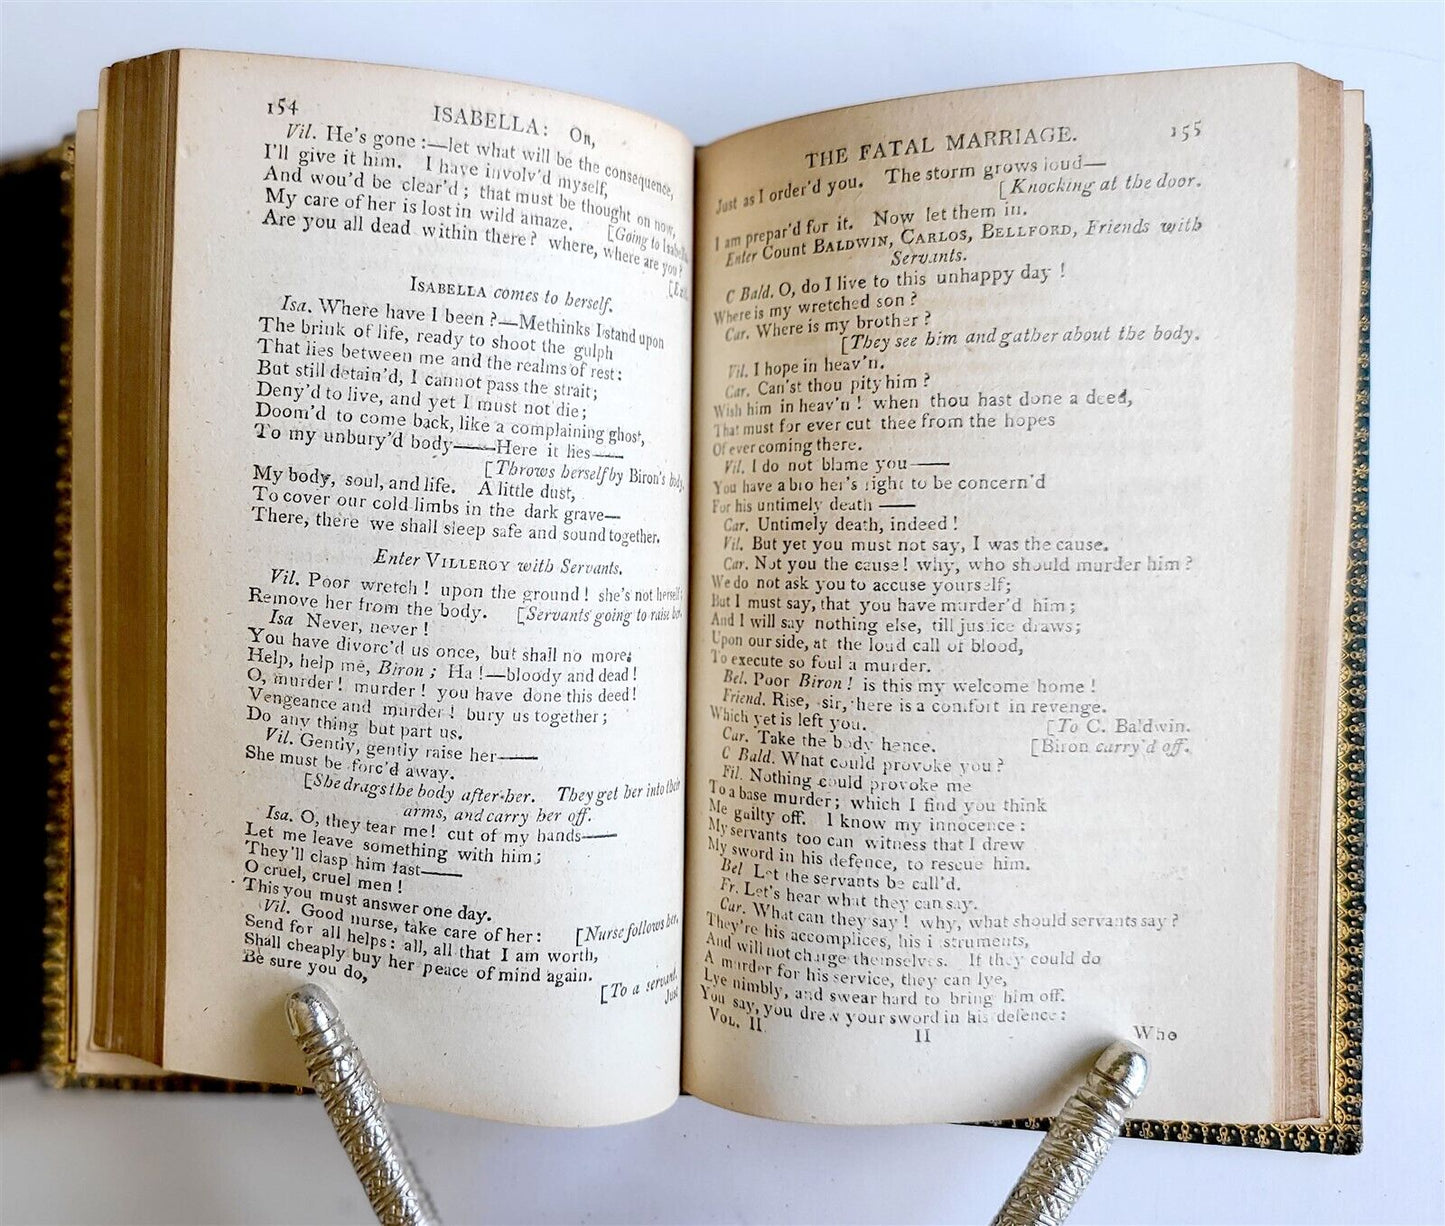 154
ISABELLA: OR,
Vil. He's gone:—let what will be the consequence,
I'll give it him. I have involv'd myself,
And wou'd be clear'd; that must be thought on now,
My care of her is lost in wild amaze. [Going to Isabella.
Are you all dead within there? where, where are you?
ISABELLA comes to herself.
Isa. Where have I been?—Methinks I stand upon
The brink of life, ready to shoot the gulph
That lies between me and the realms of rest:
But still detain'd, I cannot pass the strait;
Deny'd to live, and yet I must not die;
Doom'd to come back, like a complaining ghost,
To my unbury'd body——Here it lies——
[Throws herself by Biron's body.
My body, soul, and life. A little dust,
To cover our cold limbs in the dark grave—
There, there we shall sleep safe and sound together.
Enter VILLEROY with Servants.
Vil. Poor wretch! upon the ground! she's not herself:
Remove her from the body. [Servants going to raise her.
Isa Never, never!
You have divorc'd us once, but shall no more;
Help, help me, Biron; Ha!—bloody and dead!
O, murder! murder! you have done this deed!
Vengeance and murder! bury us together;
Do any thing but part us.
Vil. Gently, gently raise her——
She must be forc'd away.
[She drags the body after her. They get her into their
arms, and carry her off.
Isa. O, they tear me! cut of my hands——
Let me leave something with him;
They'll clasp him fast——
O cruel, cruel men!
This you must answer one day.
Vil. Good nurse, take care of her: [Nurse follows her.
Send for all helps: all, all that I am worth,
Shall cheaply buy her peace of mind again.
Be sure you do, [To a servant.
Just
THE FATAL MARRIAGE. 155
Just as I order'd you. The storm grows loud—
[Knocking at the door.
I am prepar'd for it. Now let them in.
Enter Count BALDWIN, CARLOS, BELLFORD, Friends with
Servants.
C Bald. O, do I live to this unhappy day!
Where is my wretched son?
Car. Where is my brother?
[They see him and gather about the body.
Vil. I hope in heav'n.
Car. Can'st thou pity him?
Wish him in heav'n! when thou hast done a deed,
That must for ever cut thee from the hopes
Of ever coming there.
Vil. I do not blame you——
You have a bro her's right to be concern'd
For his untimely death ——
Car. Untimely death, indeed!
Vil. But yet you must not say, I was the cause.
Car. Not you the cause! why, who should murder him?
We do not ask you to accuse yourself;
But I must say, that you have murder'd him;
And I will say nothing else, till jus ice draws;
Upon our side, at the loud call of blood,
To execute so foul a murder.
Bel. Poor Biron! is this my welcome home!
Friend. Rise, sir, here is a comfort in revenge.
Which yet is left you. [To C. Baldwin.
Car. Take the body hence. [Biron carry'd off.
C Bald. What could provoke you?
Fil. Nothing could provoke me
To a base murder; which I find you think
Me guilty off. I know my innocence:
My servants too can witness that I drew
My sword in his defence, to rescue him.
Bel Let the servants be call'd.
Fr. Let's hear what they can say.
Car. What can they say! why, what should servants say?
They're his accomplices, his i struments,
And will not charge themselves. If they could do
A murder for his service, they can lye,
Lye nimbly, and swear hard to bring him off.
You say, you drew your sword in his defence:
VOL. II II Who